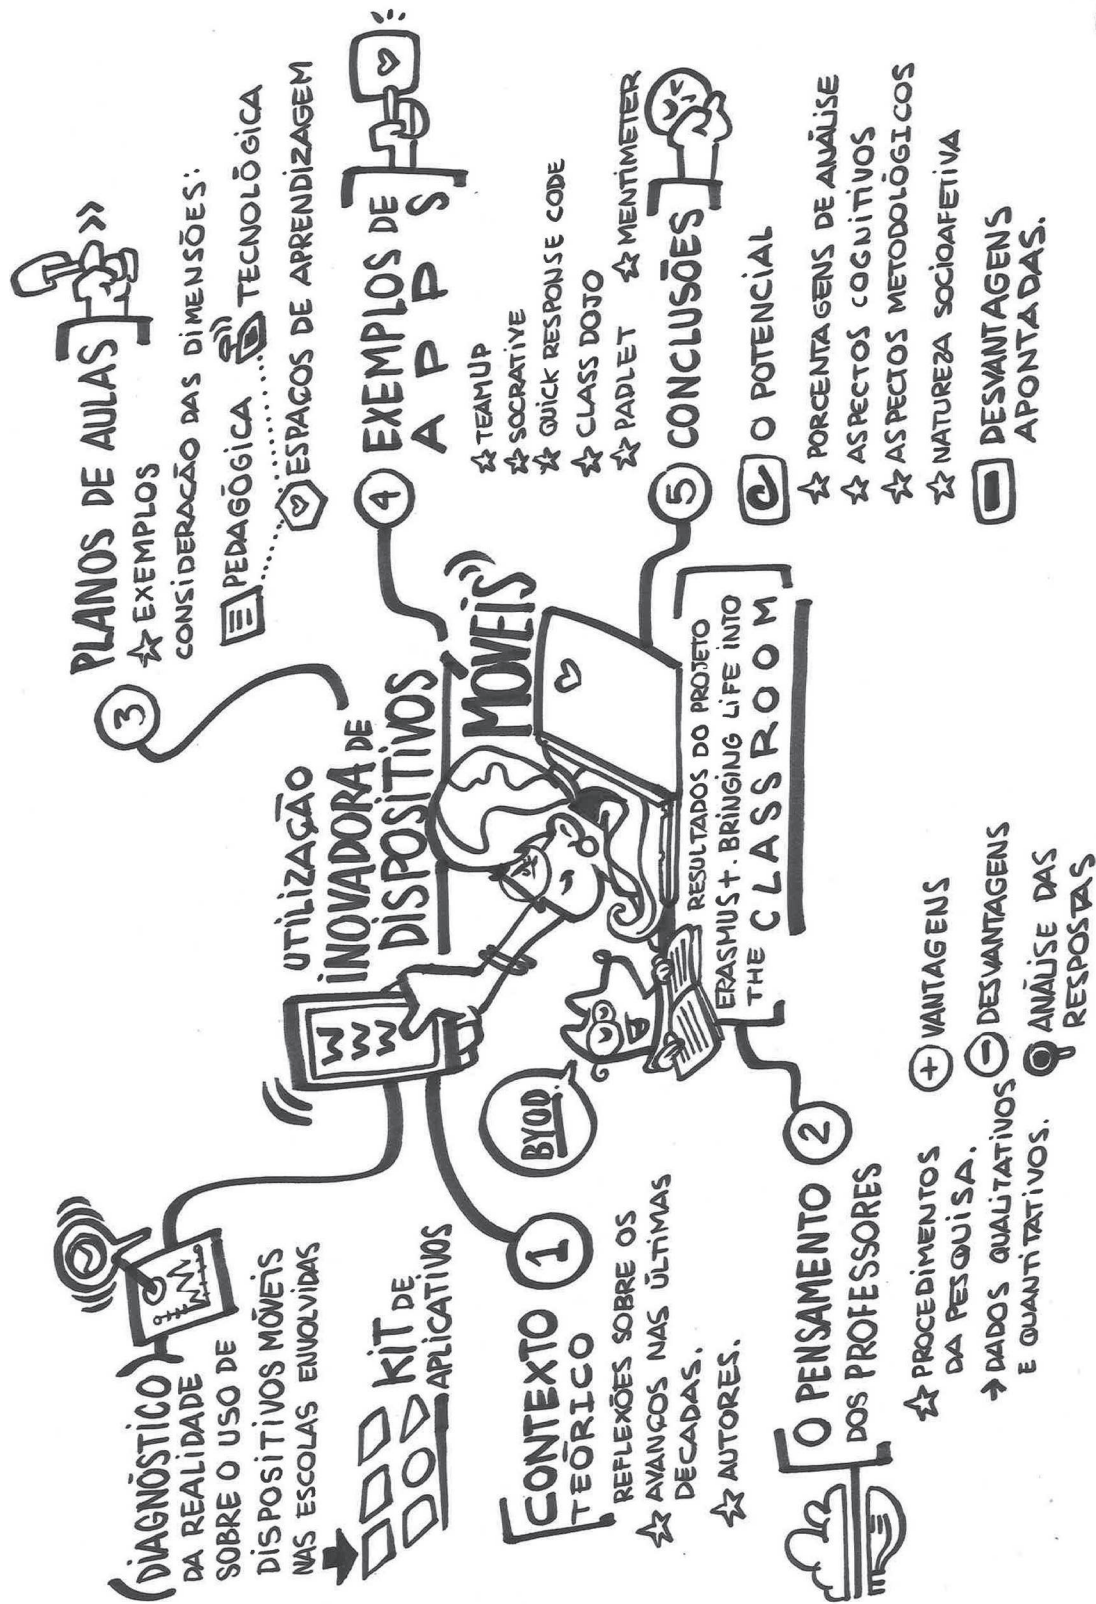 UTILIZAÇÃO
INOVADORA DE
DISPOSITIVOS
MÓVEIS
WWW
BYOD.
RESULTADOS DO PROJETO
ERASMUS+. BRINGING LIFE INTO
THE CLASSROOM
(DIAGNÓSTICO)
DA REALIDADE
SOBRE O USO DE
DISPOSITIVOS MÓVEIS
NAS ESCOLAS ENVOLVIDAS
KIT DE
APLICATIVOS
1
[CONTEXTO
TEÓRICO
REFLEXÕES SOBRE OS
AVANÇOS NAS ÚLTIMAS
DECADAS.
AUTORES.
2
[O PENSAMENTO
DOS PROFESSORES
PROCEDIMENTOS
DA PESQUISA.
→ DADOS QUALITATIVOS
E QUANTITATIVOS.
+ VANTAGENS
- DESVANTAGENS
ANÁLISE DAS
RESPOSTAS
3
PLANOS DE AULAS]
EXEMPLOS
CONSIDERAÇÃO DAS DIMENSÕES:
PEDAGÓGICA
TECNOLÓGICA
ESPAÇOS DE APRENDIZAGEM
4
EXEMPLOS DE
APPS
TEAMUP
SOCRATIVE
QUICK RESPONSE CODE
CLASS DOJO
PADLET
MENTIMETER
5
CONCLUSÕES]
O POTENCIAL
PORCENTAGENS DE ANÁLISE
ASPECTOS COGNITIVOS
ASPECTOS METODOLÓGICOS
NATUREZA SOCIOAFETIVA
DESVANTAGENS
APONTADAS.